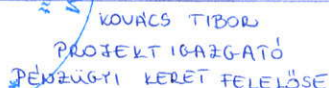 KOVÁCS TIBOR
PROJEKT IGAZGATÓ
PÉNZÜGYI KERET FELELŐSE